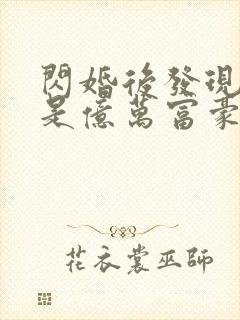 閃婚後發現
是億萬富豪
花衣裳巫師